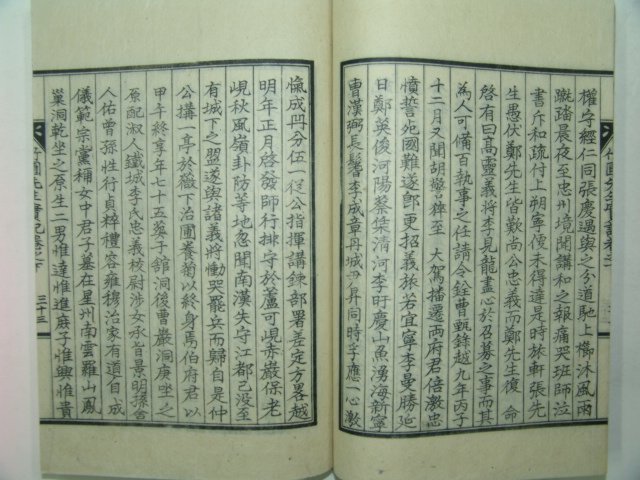 權字經仁同張慶遇與之分道馳上櫛沐風雨
蹴踏晨夜至忠州境聞講和之報痛哭班師泣
書斥和疏付上朔寧倭未得達是時旅軒張先
生愚伏鄭先生皆歎尚公忠義而鄭先生復命
啓有曰高靈義將李見龍盡心於召募之事而其
為人可備百執事之任請令銓曹甄錄越九年丙子
十二月又聞胡警猝至大駕播遷兩府君倍激忠
憤誓死國難遂郎更招義旅若宜寧李曼勝延
日鄭英俊河陽蔡楘清河李旴慶山魚湧海新寧
曹漢弼長鬐李成章丹城尹昇同時孚應一心激
愾成冊分伍一從公指揮講鍊部署差定方畧越
明年正月啓發師行排守於蘆可峴赤巖保老
峴秋風嶺卦防等地忽聞南漢失守江都已没至
有城下之盟遂與諸義將慟哭罷兵而歸自是仲
公搆一亭於薇下治圃養菊以終身焉伯府君以
甲午終享年七十五葬于館洞後曹巖洞庚坐之
原配淑人鐵城李氏忠義校尉汐女承旨景明孫舍
人佑曾孫性行貞粹禮容雍穆治家有道自成
儀範宗黨稱女中君子墓在星州南雲羅山鳳
巢洞乾坐之原生二男惟達惟進庶子惟興惟貴
竹圃先生實記卷之下
三十三